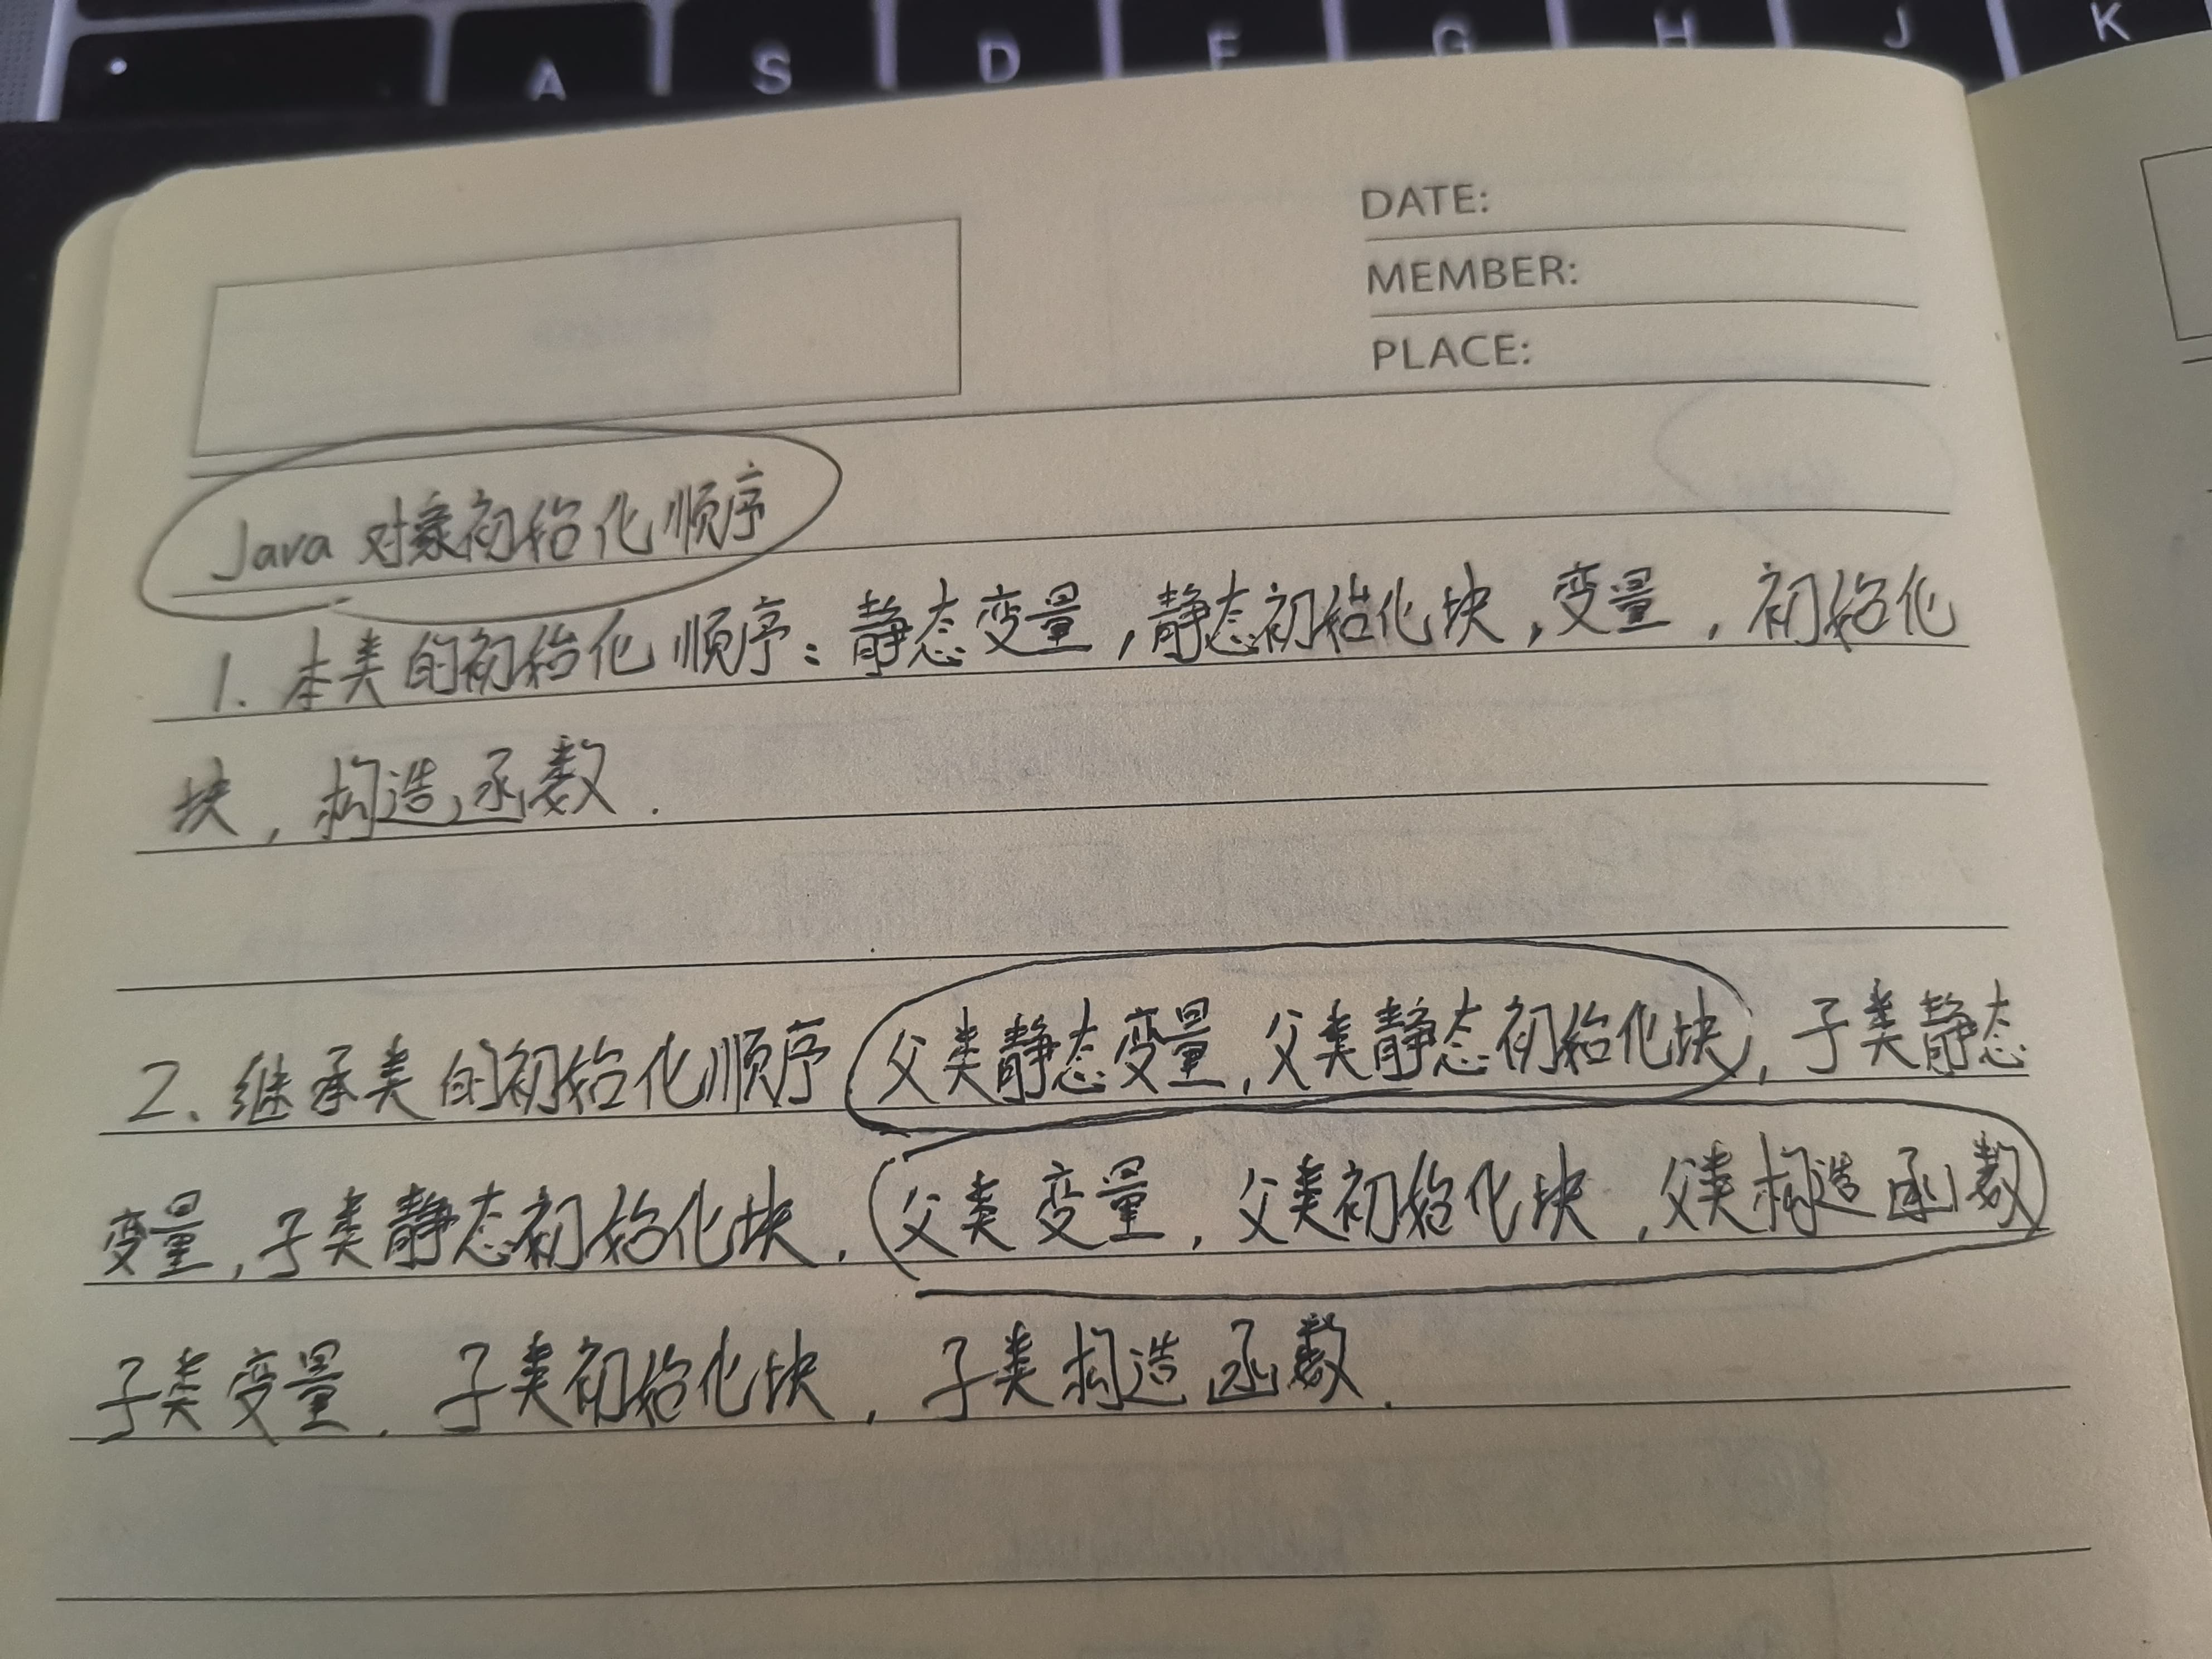 A S D F G H J K
DATE:
MEMBER:
PLACE:
Java 对象初始化顺序
1. 本类的初始化顺序：静态变量，静态初始化块，变量，初始化
块，构造函数.
2、继承类的初始化顺序 父类静态变量，父类静态初始化块，子类静态
变量，子类静态初始化块，父类变量，父类初始化块，父类构造函数
子类变量，子类初始化块，子类构造函数.